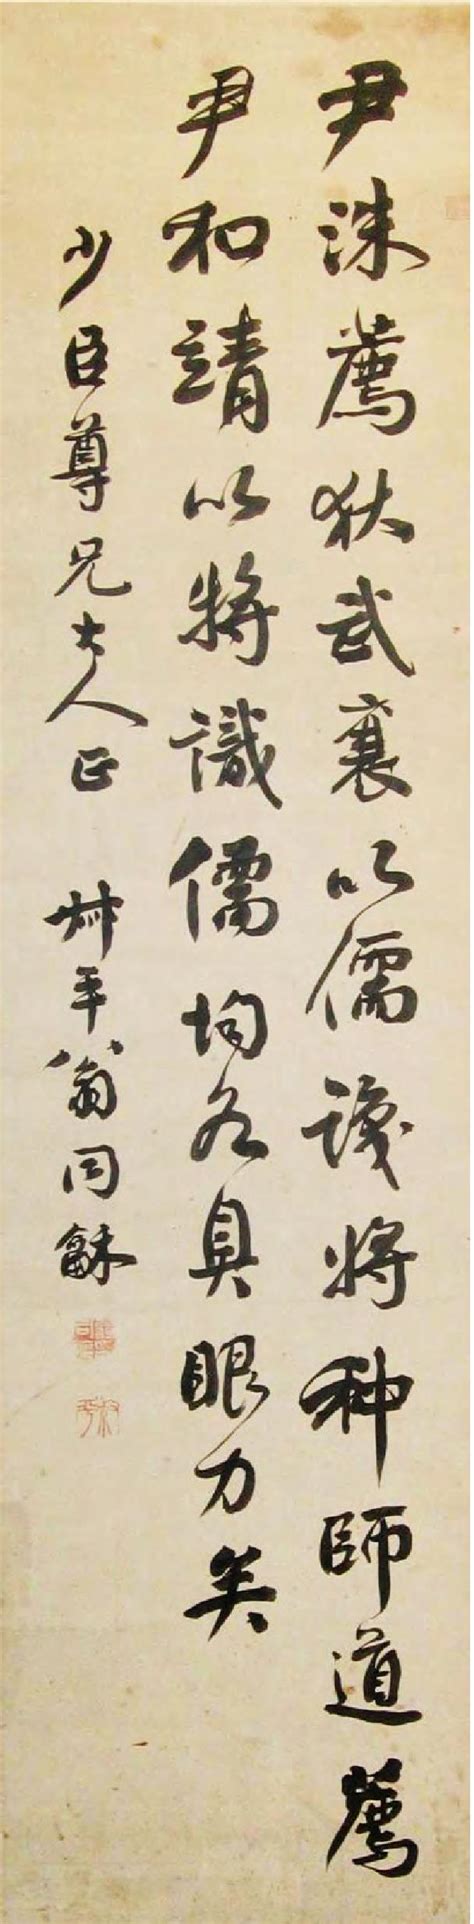 尹洙薦狄武襄以儒識將种師道薦
尹和靖以將識儒均各具眼力矣
少臣尊兄大人正 叔平翁同龢